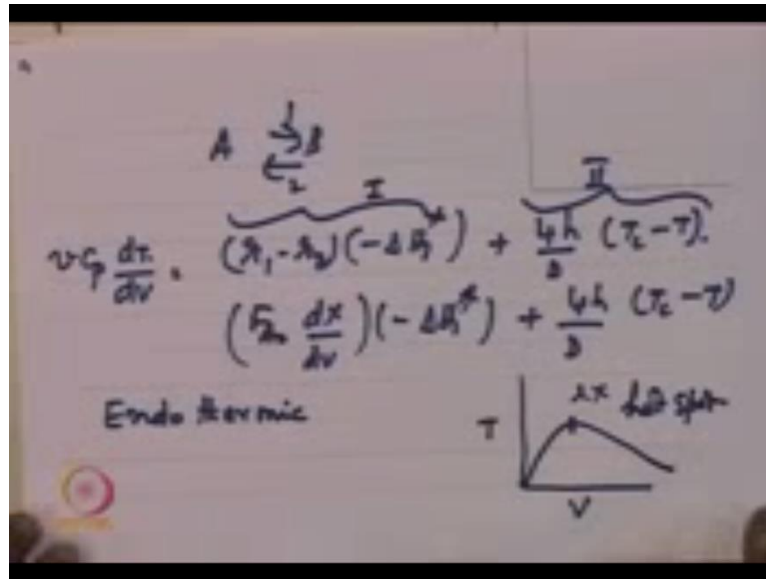 A 1 ⇌ 2 B
I II
v Cp dT/dV = (r1 - r2)(-ΔH1*) + 4h/D (Tc - T).
(FA0 dx/dV)(-ΔH1*) + 4h/D (Tc - T)
Endothermic
T ex hot spot
V